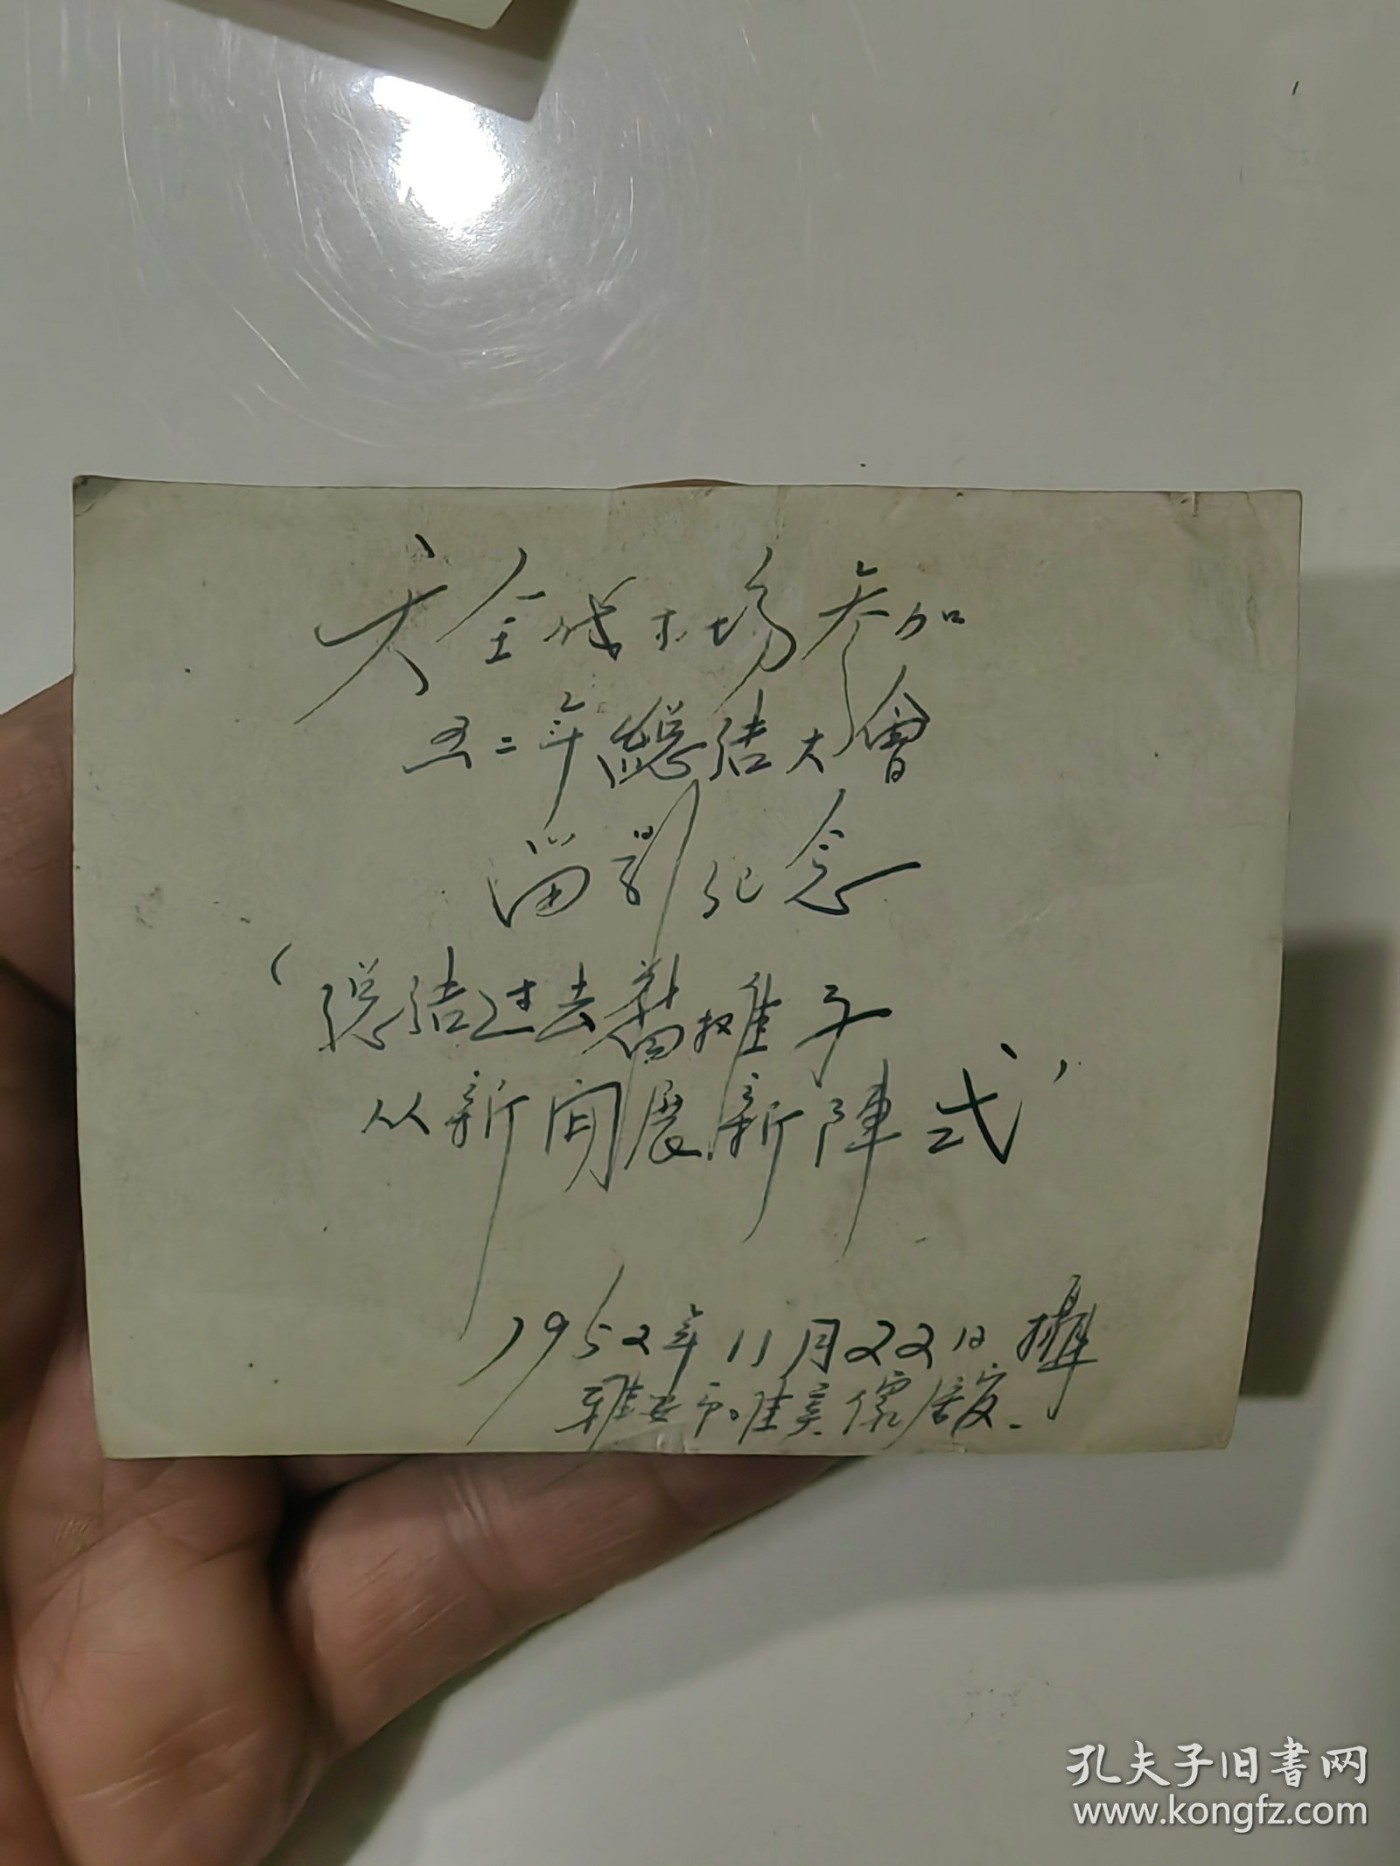 天全伐木场参加
五二年總结大會
留影纪念
"總结过去旧摊子
从新開展新陣式"
1952年11月22日攝
雅安市唯美像舘.
孔夫子旧书网
www.kongfz.com